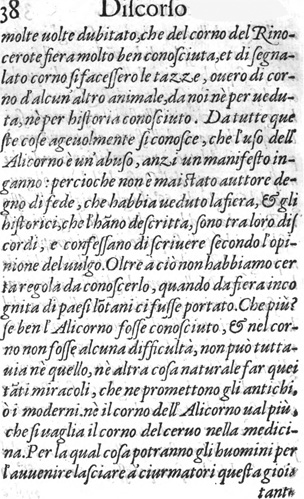 38 Diſcorſo
molte uolte dubitato, che del corno del Rino-
cerote fiera molto ben conoſciuta, et di ſegna-
lato corno ſi faceſſero le tazze, ouero di cor-
no d'alcun altro animale, da noi nè per uedu-
ta, nè per hiſtoria conoſciuto. Da tutte que
ſte coſe ageuolmente ſi conoſce, che l'uſo dell'
Alicorno è un'abuſo, anzi un manifeſto in-
ganno: percioche non è mai ſtato auttore de-
gno di fede, che habbia ueduto la fiera, & gli
hiſtorici, che l'hãno deſcritta, ſono tra loro diſ
cordi, e confeſſano di ſcriuere ſecondo l'opi-
nione del uulgo. Oltrè à ciò non habbiamo cer
ta regola da conoſcerlo, quando da fiera inco
gnita di paeſi lõtani ci fuſſe portato. Che più?
ſe ben l'Alicorno foſſe conoſciuto, & nel cor-
no non foſſe alcuna difficultà, non può tutta-
uia nè quello, nè altra coſa naturale far quei
tãti miracoli, che ne promettono gli antichi,
ò i moderni. nè il corno dell'Alicorno ual più,
che ſi uaglia il corno del ceruo nella medici-
na. Per la qual coſa potranno gli huomini per
l'auuenire laſciare à ciurmatori queſta gioia
tanto